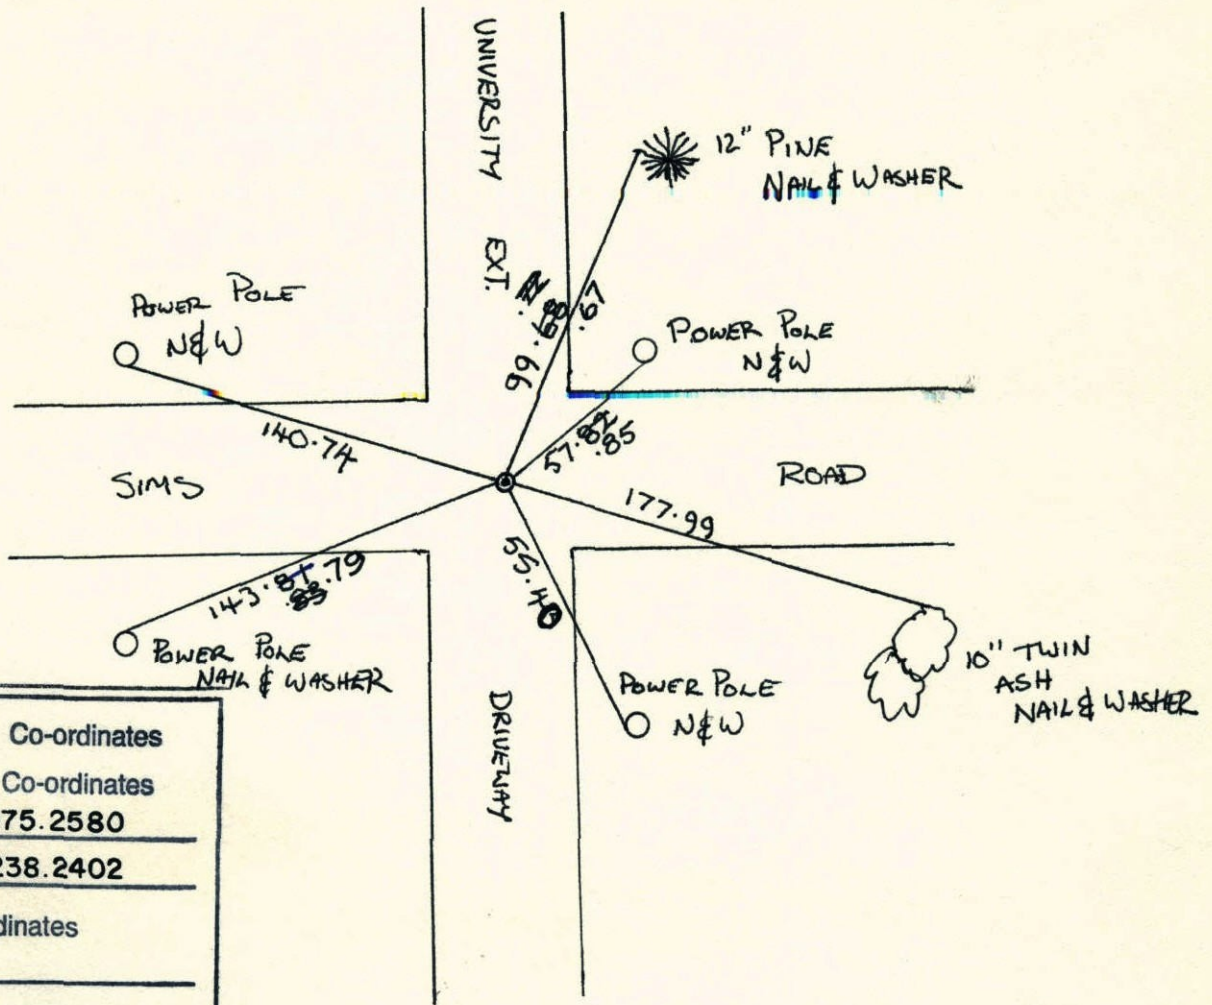 UNIVERSITY EXT.
12" PINE
NAIL & WASHER
POWER POLE
N&W
POWER POLE
N&W
99.68
.67
57.82
.85
140.74
SIMS
ROAD
177.99
55.40
143.81 .79
.83
POWER POLE
NAIL & WASHER
POWER POLE
N&W
10" TWIN
ASH
NAIL & WASHER
DRIVEWAY
Co-ordinates
Co-ordinates
75.2580
238.2402
dinates